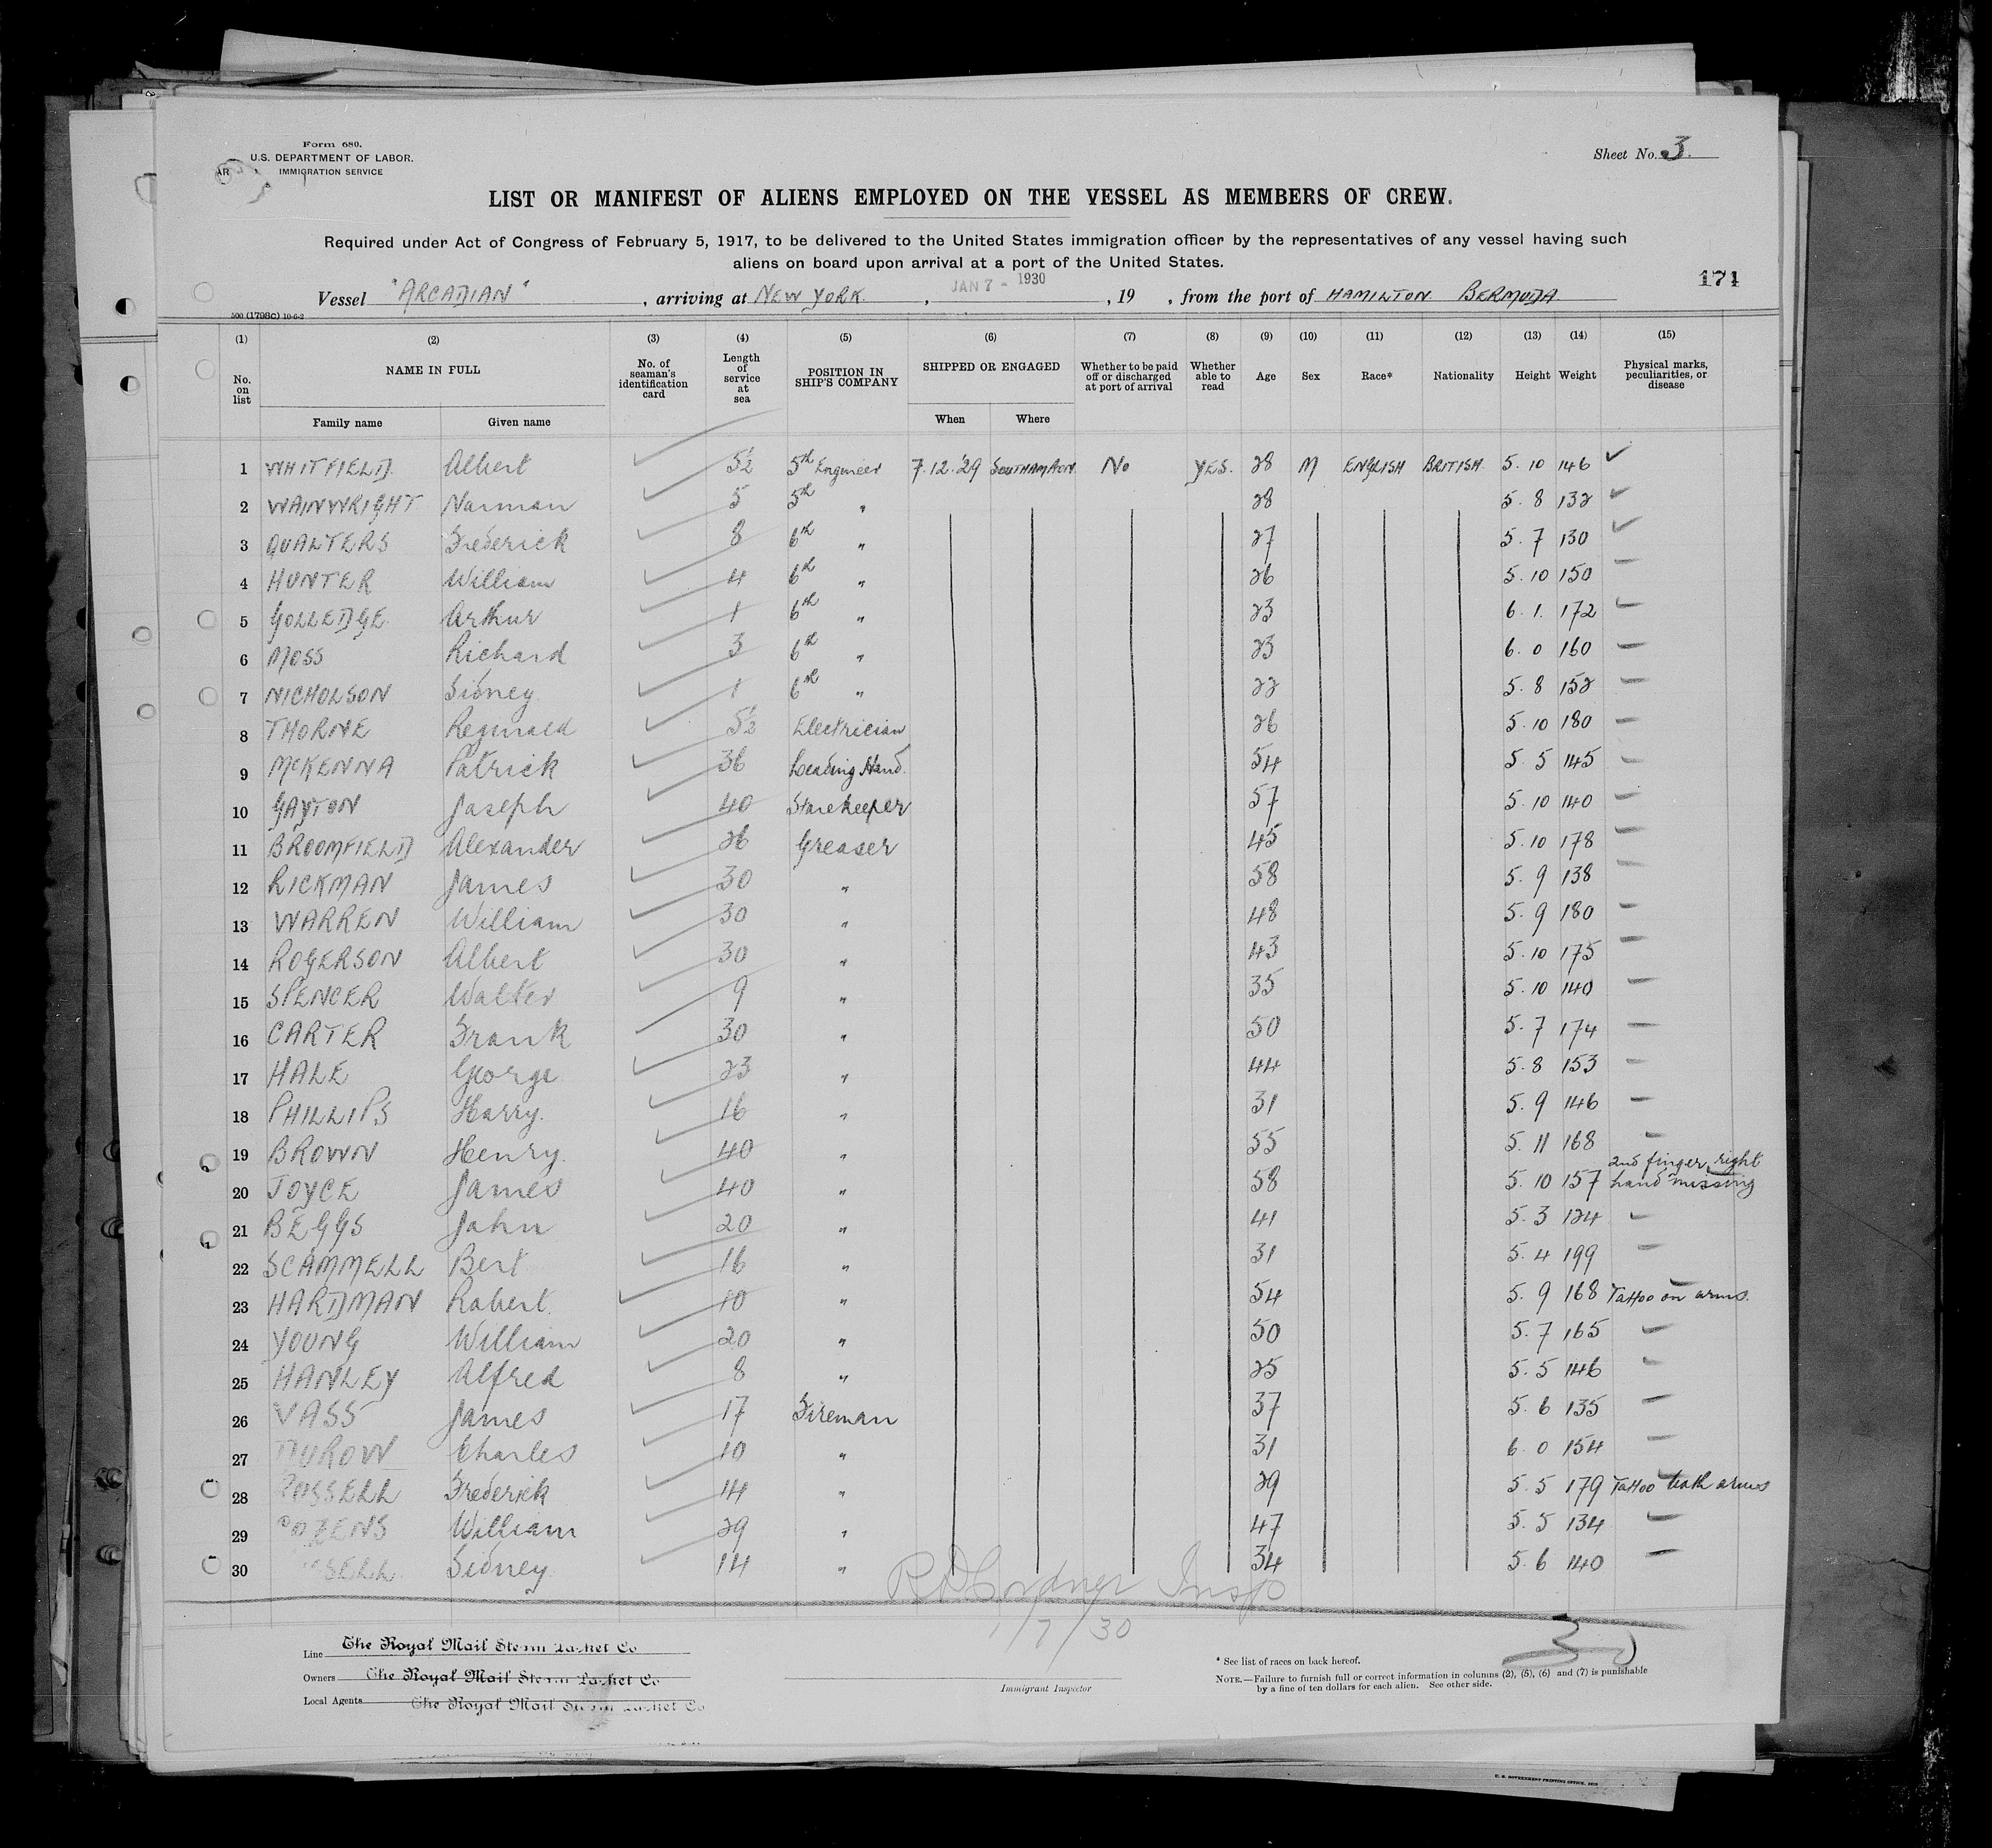 Form 680.
U.S. DEPARTMENT OF LABOR.
IMMIGRATION SERVICE
Sheet No. 3.
LIST OR MANIFEST OF ALIENS EMPLOYED ON THE VESSEL AS MEMBERS OF CREW.
Required under Act of Congress of February 5, 1917, to be delivered to the United States immigration officer by the representatives of any vessel having such
aliens on board upon arrival at a port of the United States.
174
Vessel "ARCADIAN", arriving at NEW YORK. , JAN 7 - 1930 , 19 , from the port of HAMILTON BERMUDA
500 (1798c) 10-6-2
(1) (2) (3) (4) (5) (6) (7) (8) (9) (10) (11) (12) (13) (14) (15)
No. on list NAME IN FULL Family name Given name No. of seaman's identification card Length of service at sea POSITION IN SHIP'S COMPANY SHIPPED OR ENGAGED When Where Whether to be paid off or discharged at port of arrival Whether able to read Age Sex Race* Nationality Height Weight Physical marks, peculiarities, or disease
1 WHITFIELD. Albert 5½ 5th Engineer 7.12.'29 SOUTHAMPTON. No YES. 28 M ENGLISH BRITISH. 5. 10 146
2 WAINWRIGHT Norman 5 5th " 28 5. 8 132
3 QUALTERS Frederick 8 6th " 27 5. 7 130
4 HUNTER William 4 6th " 26 5. 10 150 —
5 GOLLEDGE. Arthur 1 6th " 23 6. 1. 172 —
6 MOSS Richard 3 6th " 23 6. 0 160 —
7 NICHOLSON Sidney. 1 6th " 22 5. 8 152 —
8 THORNE Reginald 5½ Electrician 26 5. 10 180 —
9 McKENNA Patrick 36 Leading Hand. 54 5. 5 145 —
10 GAYTON Joseph 40 Storekeeper 57 5. 10 140 —
11 BROOMFIELD Alexander 26 Greaser 45 5. 10 178 —
12 RICKMAN James 30 " 58 5. 9 138 —
13 WARREN William 30 " 48 5. 9 180 —
14 ROGERSON Albert 30 " 43 5. 10 175 —
15 SPENCER Walter 9 " 35 5. 10 140 —
16 CARTER Frank 30 " 50 5. 7 174 —
17 HALE George 23 " 44 5. 8 153 —
18 PHILLIPS Harry. 16 " 31 5. 9 146 —
19 BROWN Henry. 40 " 55 5. 11 168 —
20 JOYCE James 40 " 58 5. 10 157 2nd finger right hand missing
21 BEGGS John 20 " 41 5. 3 124 —
22 SCAMMELL Bert 16 " 31 5. 4 199 —
23 HARDMAN Robert. 10 " 54 5. 9 168 Tattoo on arms.
24 YOUNG William 20 " 50 5. 7 165 —
25 HANLEY Alfred 8 " 25 5. 5 146 —
26 VASS James 17 Fireman 37 5. 6 135 —
27 DUROW Charles 10 " 31 6. 0 154 —
28 Frederick 14 " 29 5. 5 179 Tattoo both arms
29 William 29 " 47 5. 5 134 —
30 Sidney 14 " 34 5. 6 140 —
Insp
1/7/30
30
Line The Royal Mail Steam Packet Co
Owners The Royal Mail Steam Packet Co
Local Agents The Royal Mail Steam Packet Co
Immigrant Inspector
* See list of races on back hereof.
NOTE.—Failure to furnish full or correct information in columns (2), (5), (6) and (7) is punishable
by a fine of ten dollars for each alien. See other side.
U. S. GOVERNMENT PRINTING OFFICE